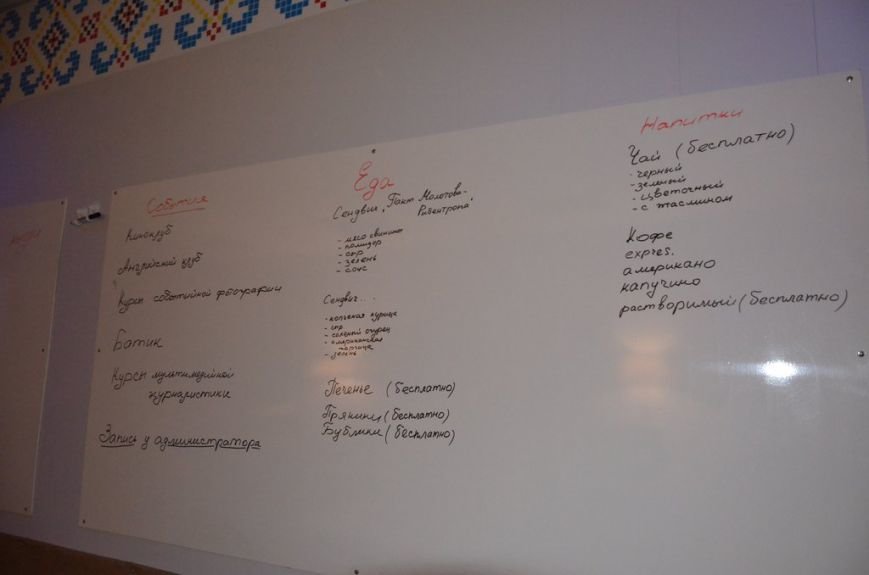 События
Киноклуб
Английский клуб
Курсы событийной фотографии
Батик
Курсы мультимедийной
журналистики
Запись у администратора
Еда
Сендвич „Пакт Молотова-
Риббентропа"
- мясо свинины
- помидор
- сыр
- зелень
- соус
Сендвич...
- копченая курица
- сыр
- соленый огурец
- американская
горчица
- зелень
Печенье (бесплатно)
Пряники (бесплатно)
Бублики (бесплатно)
Напитки
Чай (бесплатно)
- черный
- зеленый
- цветочный
- с жасмином
Кофе
expres.
американо
капучино
растворимый (бесплатно)